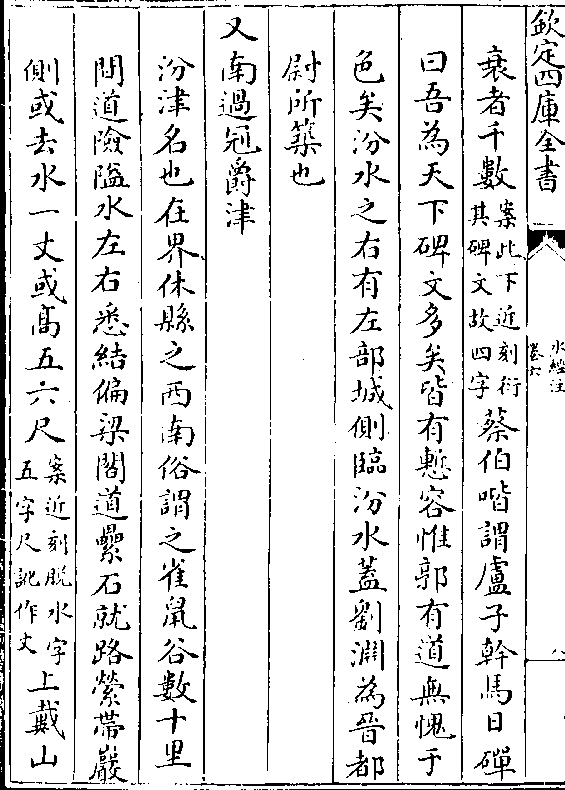 欽定四庫全書
水經注
卷六
八
衰者千數案此下近刻衍其碑文故四字蔡伯喈謂盧子幹馬日磾
曰吾為天下碑文多矣皆有慙容惟郭有道無愧于
色矣汾水之右有左部城側臨汾水蓋劉淵為晉都
尉所築也
又南過冠爵津
汾津名也在界休縣之西南俗謂之雀䑕谷數十里
間道險隘水左右悉結偏梁閣道纍石就路縈帶巖
側或去水一丈或髙五六尺案近刻脱水字五字尺訛作丈上戴山